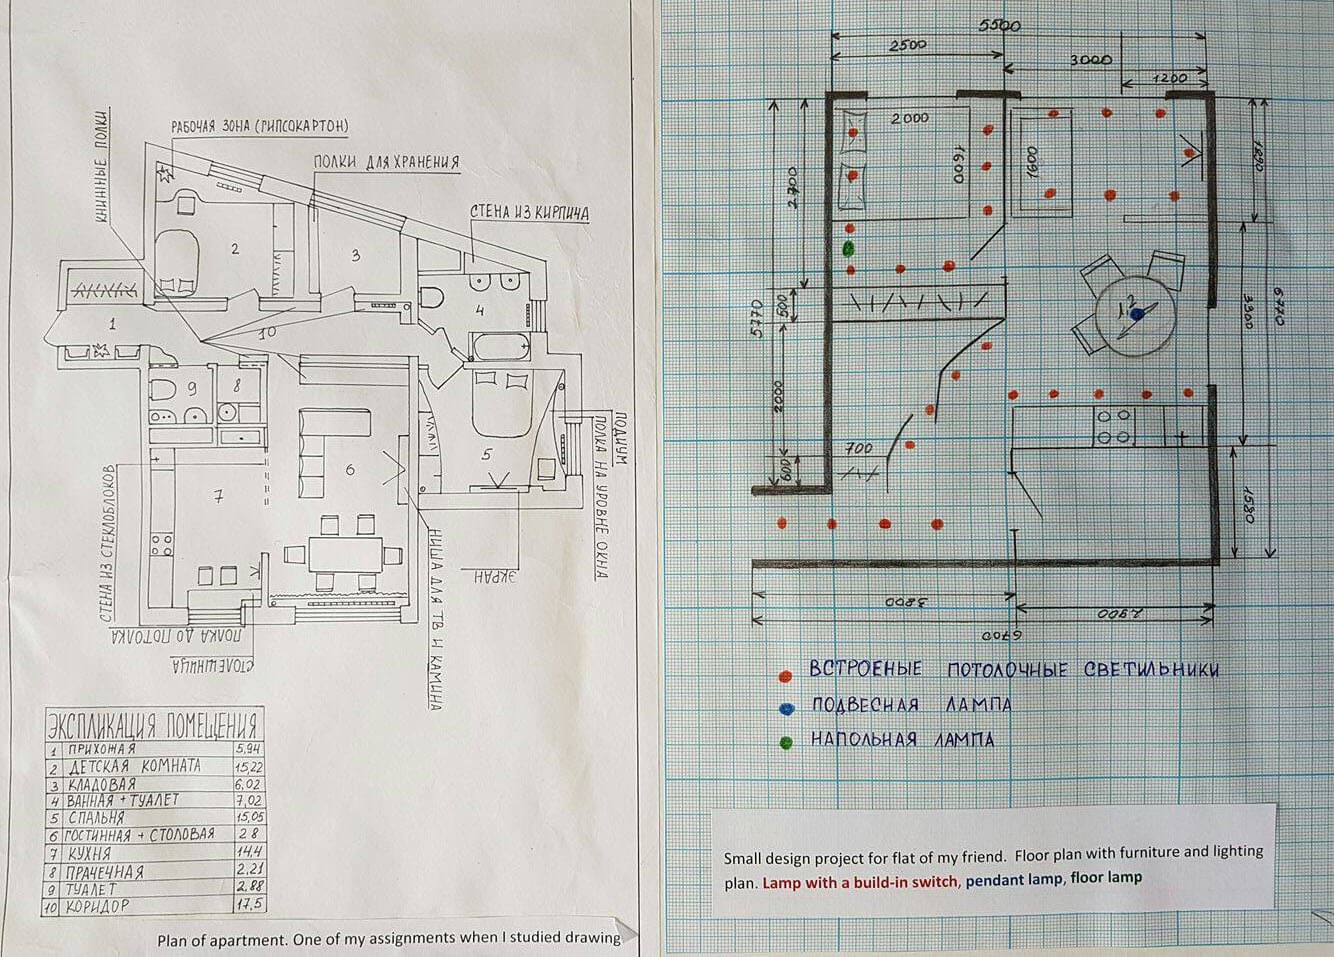 РАБОЧАЯ ЗОНА (ГИПСОКАРТОН)
КНИЖНЫЕ ПОЛКИ
ПОЛКИ ДЛЯ ХРАНЕНИЯ
СТЕНА ИЗ КИРПИЧА
1
2
3
4
5
6
7
8
9
10
ПОДИУМ
ПОЛКА НА УРОВНЕ ОКНА
СТЕНА ИЗ СТЕКЛОБЛОКОВ
ЭКРАН
НИША ДЛЯ ТВ И КАМИНА
ПОЛКА ДО ПОТОЛКА
СТОЛЕШНИЦА
ЭКСПЛИКАЦИЯ ПОМЕЩЕНИЯ
1 ПРИХОЖАЯ 5,94
2 ДЕТСКАЯ КОМНАТА 15,22
3 КЛАДОВАЯ 6,02
4 ВАННАЯ + ТУАЛЕТ 7,02
5 СПАЛЬНЯ 15,05
6 ГОСТИННАЯ + СТОЛОВАЯ 28
7 КУХНЯ 14,4
8 ПРАЧЕЧНАЯ 2,21
9 ТУАЛЕТ 2,88
10 КОРИДОР 17,5
Plan of apartment. One of my assignments when I studied drawing
5500
2500
3000
1200
2000
1600
1600
2700
1690
5770
500
1,2
3300
6770
2000
700
600
1580
3800
2900
6700
ВСТРОЕНЫЕ ПОТОЛОЧНЫЕ СВЕТИЛЬНИКИ
ПОДВЕСНАЯ ЛАМПА
НАПОЛЬНАЯ ЛАМПА
Small design project for flat of my friend. Floor plan with furniture and lighting
plan. Lamp with a build-in switch, pendant lamp, floor lamp